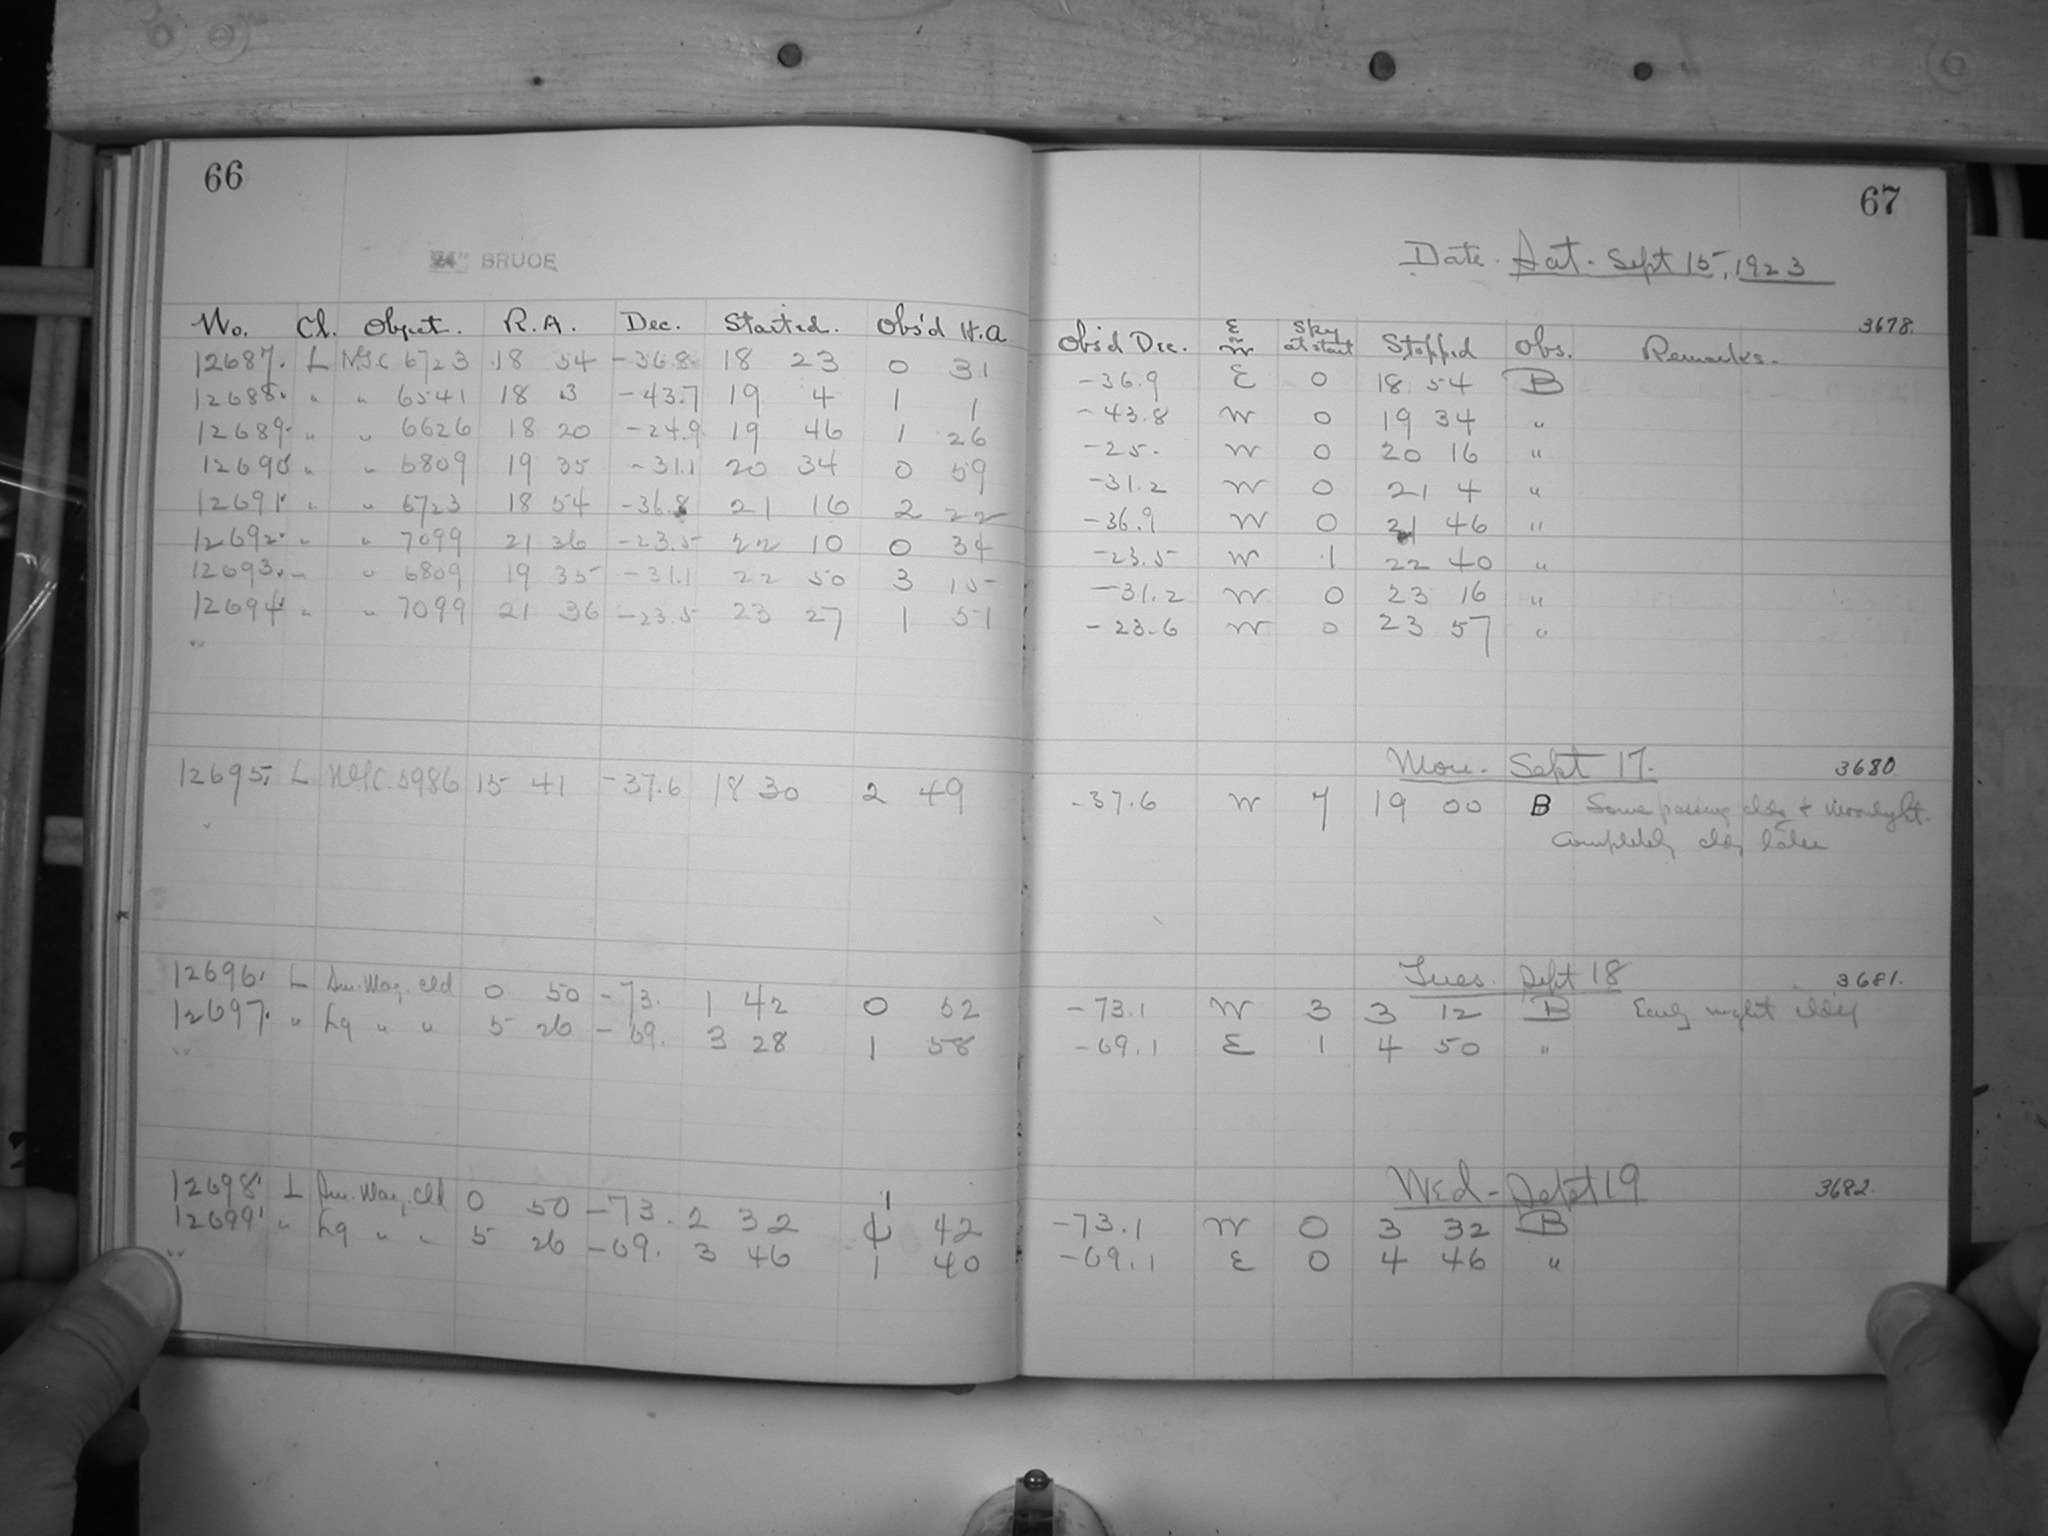 66
24" BRUCE
No. Cl. Object. R.A. Dec. Started. Obs'd H.A
12687. L N.G.C 6723 18 54 -36.8 18 23 0 31
12688. " " 6541 18 3 -43.7 19 4 1 1
12689. " " 6626 18 20 -24.9 19 46 1 26
12690 " " 6809 19 35 -31.1 20 34 0 59
12691 " " 6723 18 54 -36.8 21 16 2 22
12692. " " 7099 21 36 -23.5 22 10 0 34
12693. " " 6809 19 35 -31.1 22 50 3 15
12694 " " 7099 21 36 -23.5 23 27 1 51
"
12695. L N.G.C. 5986 15 41 -37.6 18 30 2 49
"
12696. L Sm. Mag. Cld 0 50 -73. 1 42 0 52
12697. " Lg " " 5 26 -69. 3 28 1 58
"
12698. L Sm. Mag. Cld 0 50 -73. 2 32 1 42
12699. " Lg " " 5 26 -69. 3 46 1 40
"
67
Date. Sat. Sept 15, 1923
3678.
Obs'd Dec. E or W Sky at start Stopped Obs. Remarks.
-36.9 E 0 18 54 B
-43.8 W 0 19 34 "
-25. W 0 20 16 "
-31.2 W 0 21 4 "
-36.9 W 0 21 46 "
-23.5 W 1 22 40 "
-31.2 W 0 23 16 "
-23.6 W 0 23 57 "
Mon. Sept 17. 3680
-37.6 W 7 19 00 B Some passing cldy & Moonlight.
Completely cldy later
Tues. Sept 18 3681.
-73.1 W 3 3 12 B Early night cldy
-69.1 E 1 4 50 "
Wed - Sept 19 3682.
-73.1 W 0 3 32 B
-69.1 E 0 4 46 "